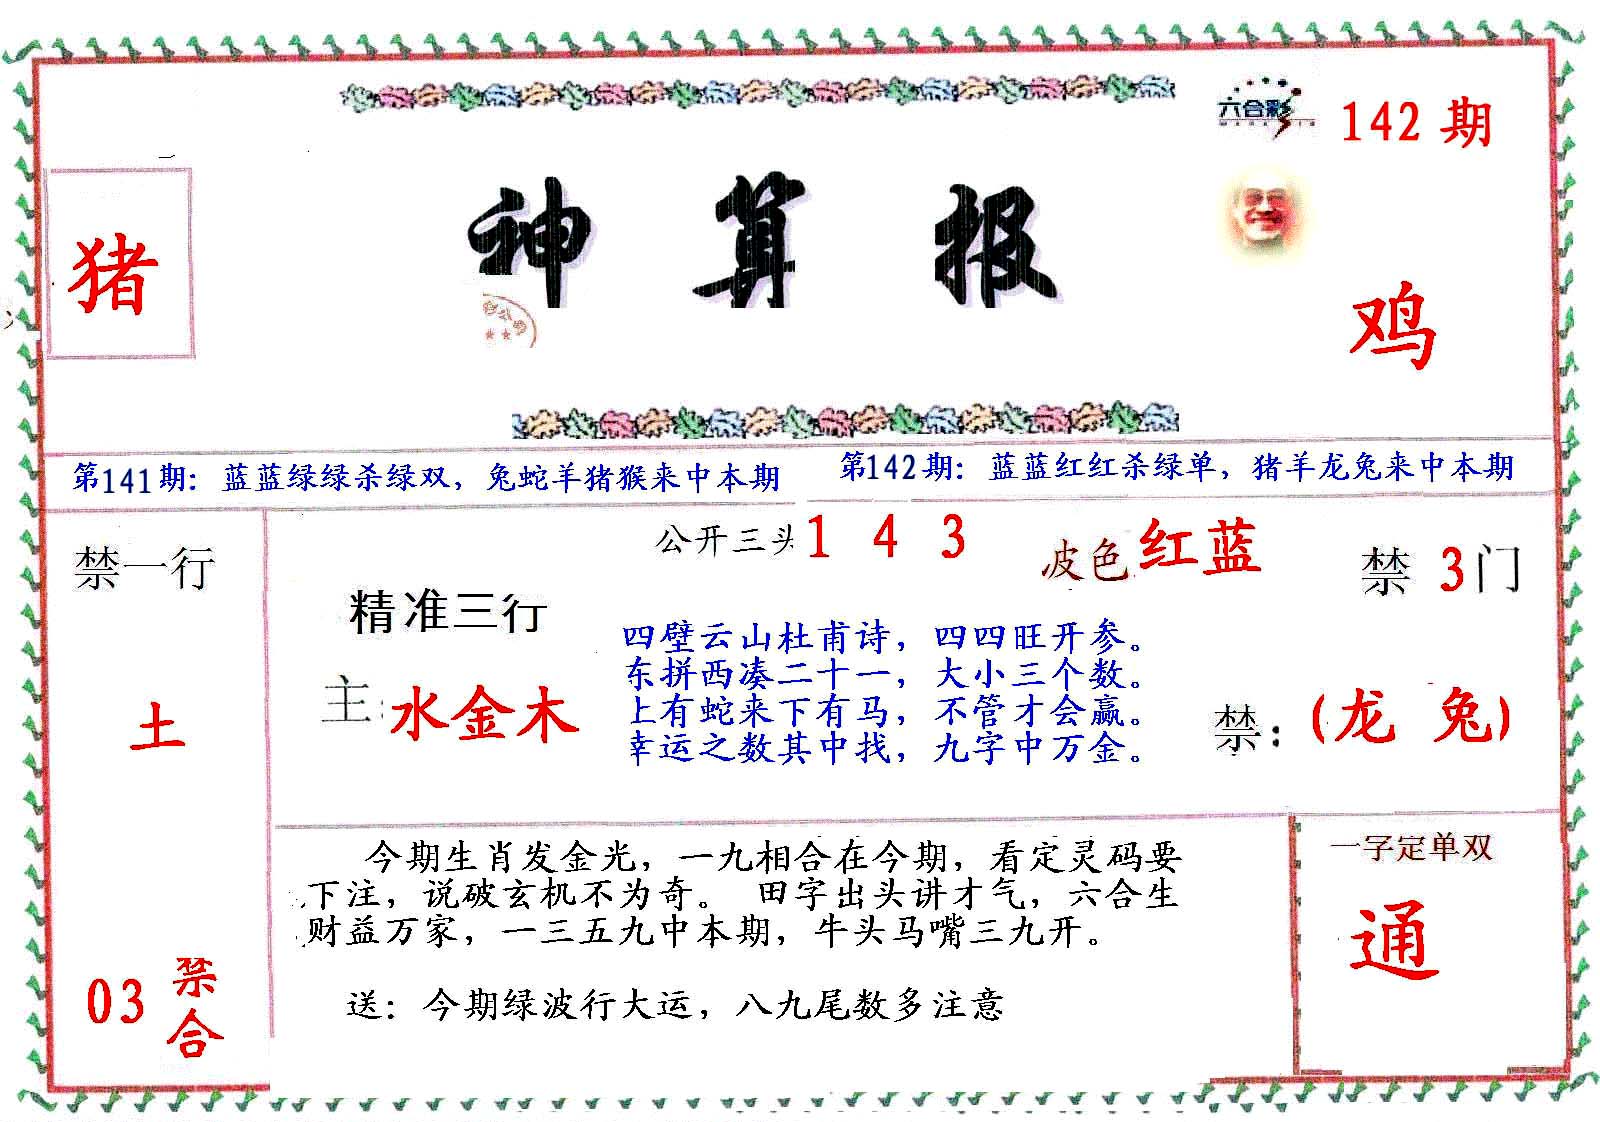 六合彩
142 期
神算报
猪
鸡
第141期：蓝蓝绿绿杀绿双，兔蛇羊猪猴来中本期
第142期：蓝蓝红红杀绿单，猪羊龙兔来中本期
禁一行
土
03 禁合
公开三头 1 4 3
波色 红蓝
禁 3 门
精准三行
主: 水金木
四壁云山杜甫诗，四四旺开参。
东拼西凑二十一，大小三个数。
上有蛇来下有马，不管才会赢。
幸运之数其中找，九字中万金。
禁:(龙 兔)
今期生肖发金光，一九相合在今期，看定灵码要
下注，说破玄机不为奇。 田字出头讲才气，六合生
财益万家，一三五九中本期，牛头马嘴三九开。
送：今期绿波行大运，八九尾数多注意
一字定单双
通